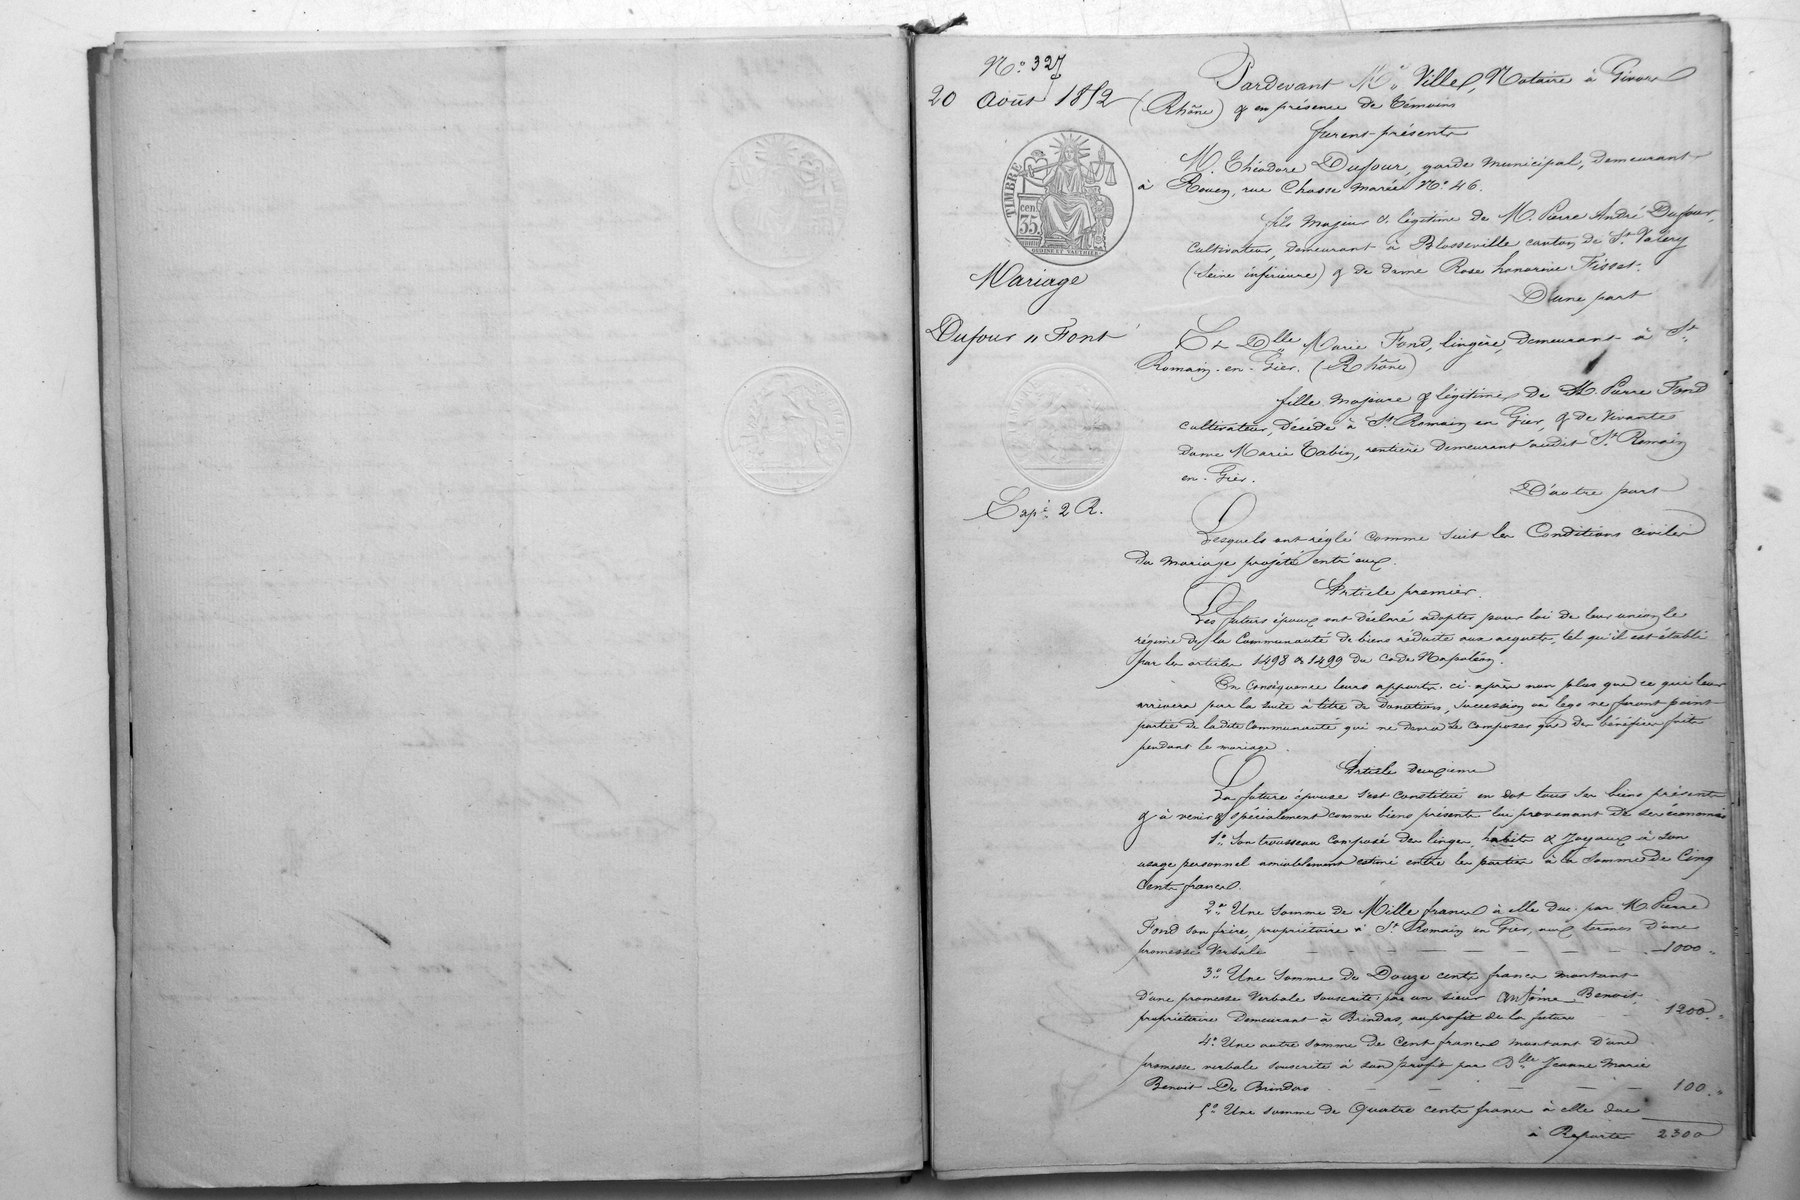 No. 327
20 Août 1852
TIMBRE
35 cen
Mariage
Dufour " Font
Expé. 2 R.
Pardevant Me. Ville, Notaire à Givors
(Rhône) & en présence de témoins
furent présents
M. Théodore Dufour, garde municipal, demeurant
à Rouen, rue Chasse marée No. 46.
fils majeur & légitime de M. Pierre André Dufour,
cultivateur, demeurant à Blosseville canton de St. Valery
(Seine inférieure) & de dame Rose honorine Fisset.
D'une part
Et Dlle. Marie Fond, lingère, demeurant à St.
Romain-en-Gier. (Rhône)
fille majeure & légitime de M. Pierre Fond
cultivateur, décédé à St. Romain en Gier, & de vivante
dame Marie Tabin, rentière demeurant audit St. Romain
en-Gier.
D'autre part
Lesquels ont réglé comme suit les Conditions civiles
du mariage projeté entr'eux.
Article premier.
Les futurs époux ont déclaré adopter pour loi de leur union le
régime de la Communauté de biens réduite aux acquets, tel qu'il est établi
par les articles 1498 & 1499 du Code Napoléon.
En conséquence leurs apports ci-après non plus que ce qui leur
arrivera par la suite à titre de donation, succession ou legs ne feront point
partie de ladite Communauté qui ne devra se composer que des bénéfices faits
pendant le mariage.
Article deuxième
La future épouse s'est constitué en dot tous ses biens présents
& à venir & spécialement comme biens présents lui provenant de ses économies
1o. Son trousseau composé des linges, habits & Joyaux à son
usage personnel amiablement estimé entre les parties à la somme de Cinq
Cents francs.
2o. Une somme de Mille francs à elle due par M. Pierre
Fond son frère, propriétaire à St. Romain en Gier, aux termes d'une
promesse Verbale — — — — — — 1000 "
3o. Une somme de Douze cents francs montant
d'une promesse verbale souscrite par un sieur antoine Benoit,
propriétaire demeurant à Brindas, au profit de la future 1200 "
4o. Une autre somme de Cent francs montant d'une
promesse verbale souscrite à son profit par Dlle. Jeanne Marie
Benoit De Brindas — — — — — 100 "
5o. Une somme de Quatre cents francs à elle due
à Reporter 2300